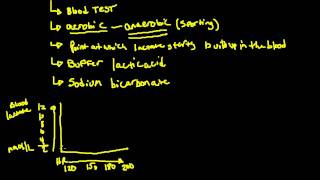 Blood TEST
aerobic — anaerobic (sporting)
Point at which lactate starts build up in the blood
Buffer lactic acid
Sodium bicarbonate
Blood lactate
12
10
8
6
4
2
mmol/L
HR
120 150 180 200